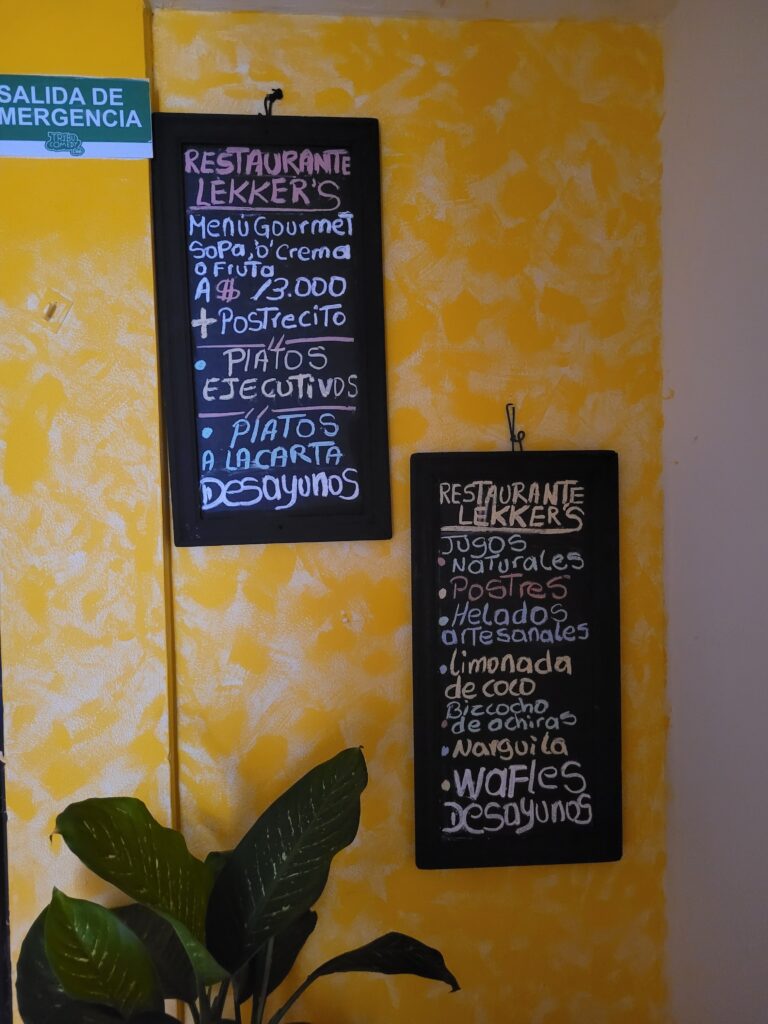 SALIDA DE
MERGENCIA
TRIBU
COMEDY
RESTAURANTE
LEKKER'S
Menú Gourmet
Sopa, o' Crema
o Fruta
A $ 13.000
+ Postrecito
• PlATOS
EJECUTIVOS
• PlATOS
A LA CARTA
Desayunos
RESTAURANTE
LEKKER'S
JUGOS
• NATURALES
• Postres
• Helados
artesanales
• limonada
de coco
Bizcocho
• de achiras
• Narguila
• Wafles
Desayunos